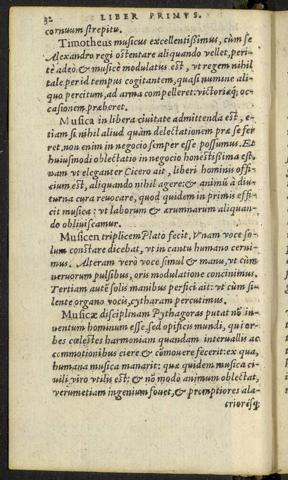 32 LIBER PRIMVS.
cornuum strepitu.
Timotheus musicus excellentissimus, cùm se
Alexandro regi ostentare aliquando vellet, peri-
tè adeò & musicè modulatus est, vt regem nihil
tale per id tempus cogitantem, quasi numine ali-
quo percitum, ad arma compelleret: victoriæq; oc-
casionem præberet.
Musica in libera ciuitate admittenda est, e-
tiam si nihil aliud quàm delectationem præ se fer
ret. non enim in negocio semper esse possumus. Et
huiusmodi oblectatio in negocio honestissima est.
nam vt eleganter Cicero ait, liberi hominis offi-
cium est, aliquando nihil agere: & animũ à diu-
turna cura reuocare, quod quidem in primis effi-
cit musica: vt laborum & ærumnarum aliquan-
do obliuiscamur.
Musicen triplicem Plato fecit. Vnam voce so-
lum constare dicebat, vt in cantu humano cerni-
mus. Alteram verò voce simul & manu, vt cùm
neruorum pulsibus, oris modulatione concinimus.
Tertiam autē solis manibus perfici ait: vt cùm si-
lente organo vocis, cytharam percutimus.
Musicæ disciplinam Pythagoras putat nõ in-
uentum hominum esse, sed opificis mundi, qui or-
bes cœlestes harmoniam quandam interuallis ac
commotionibus ciere & cõmouere fecerit: ex qua,
humana musica manarit: quæ quidem musica ci-
uili viro vtilis est: & nõ modò animum oblectat,
verumetiam ingenium fouet, & promptiores ala-
crioresq;